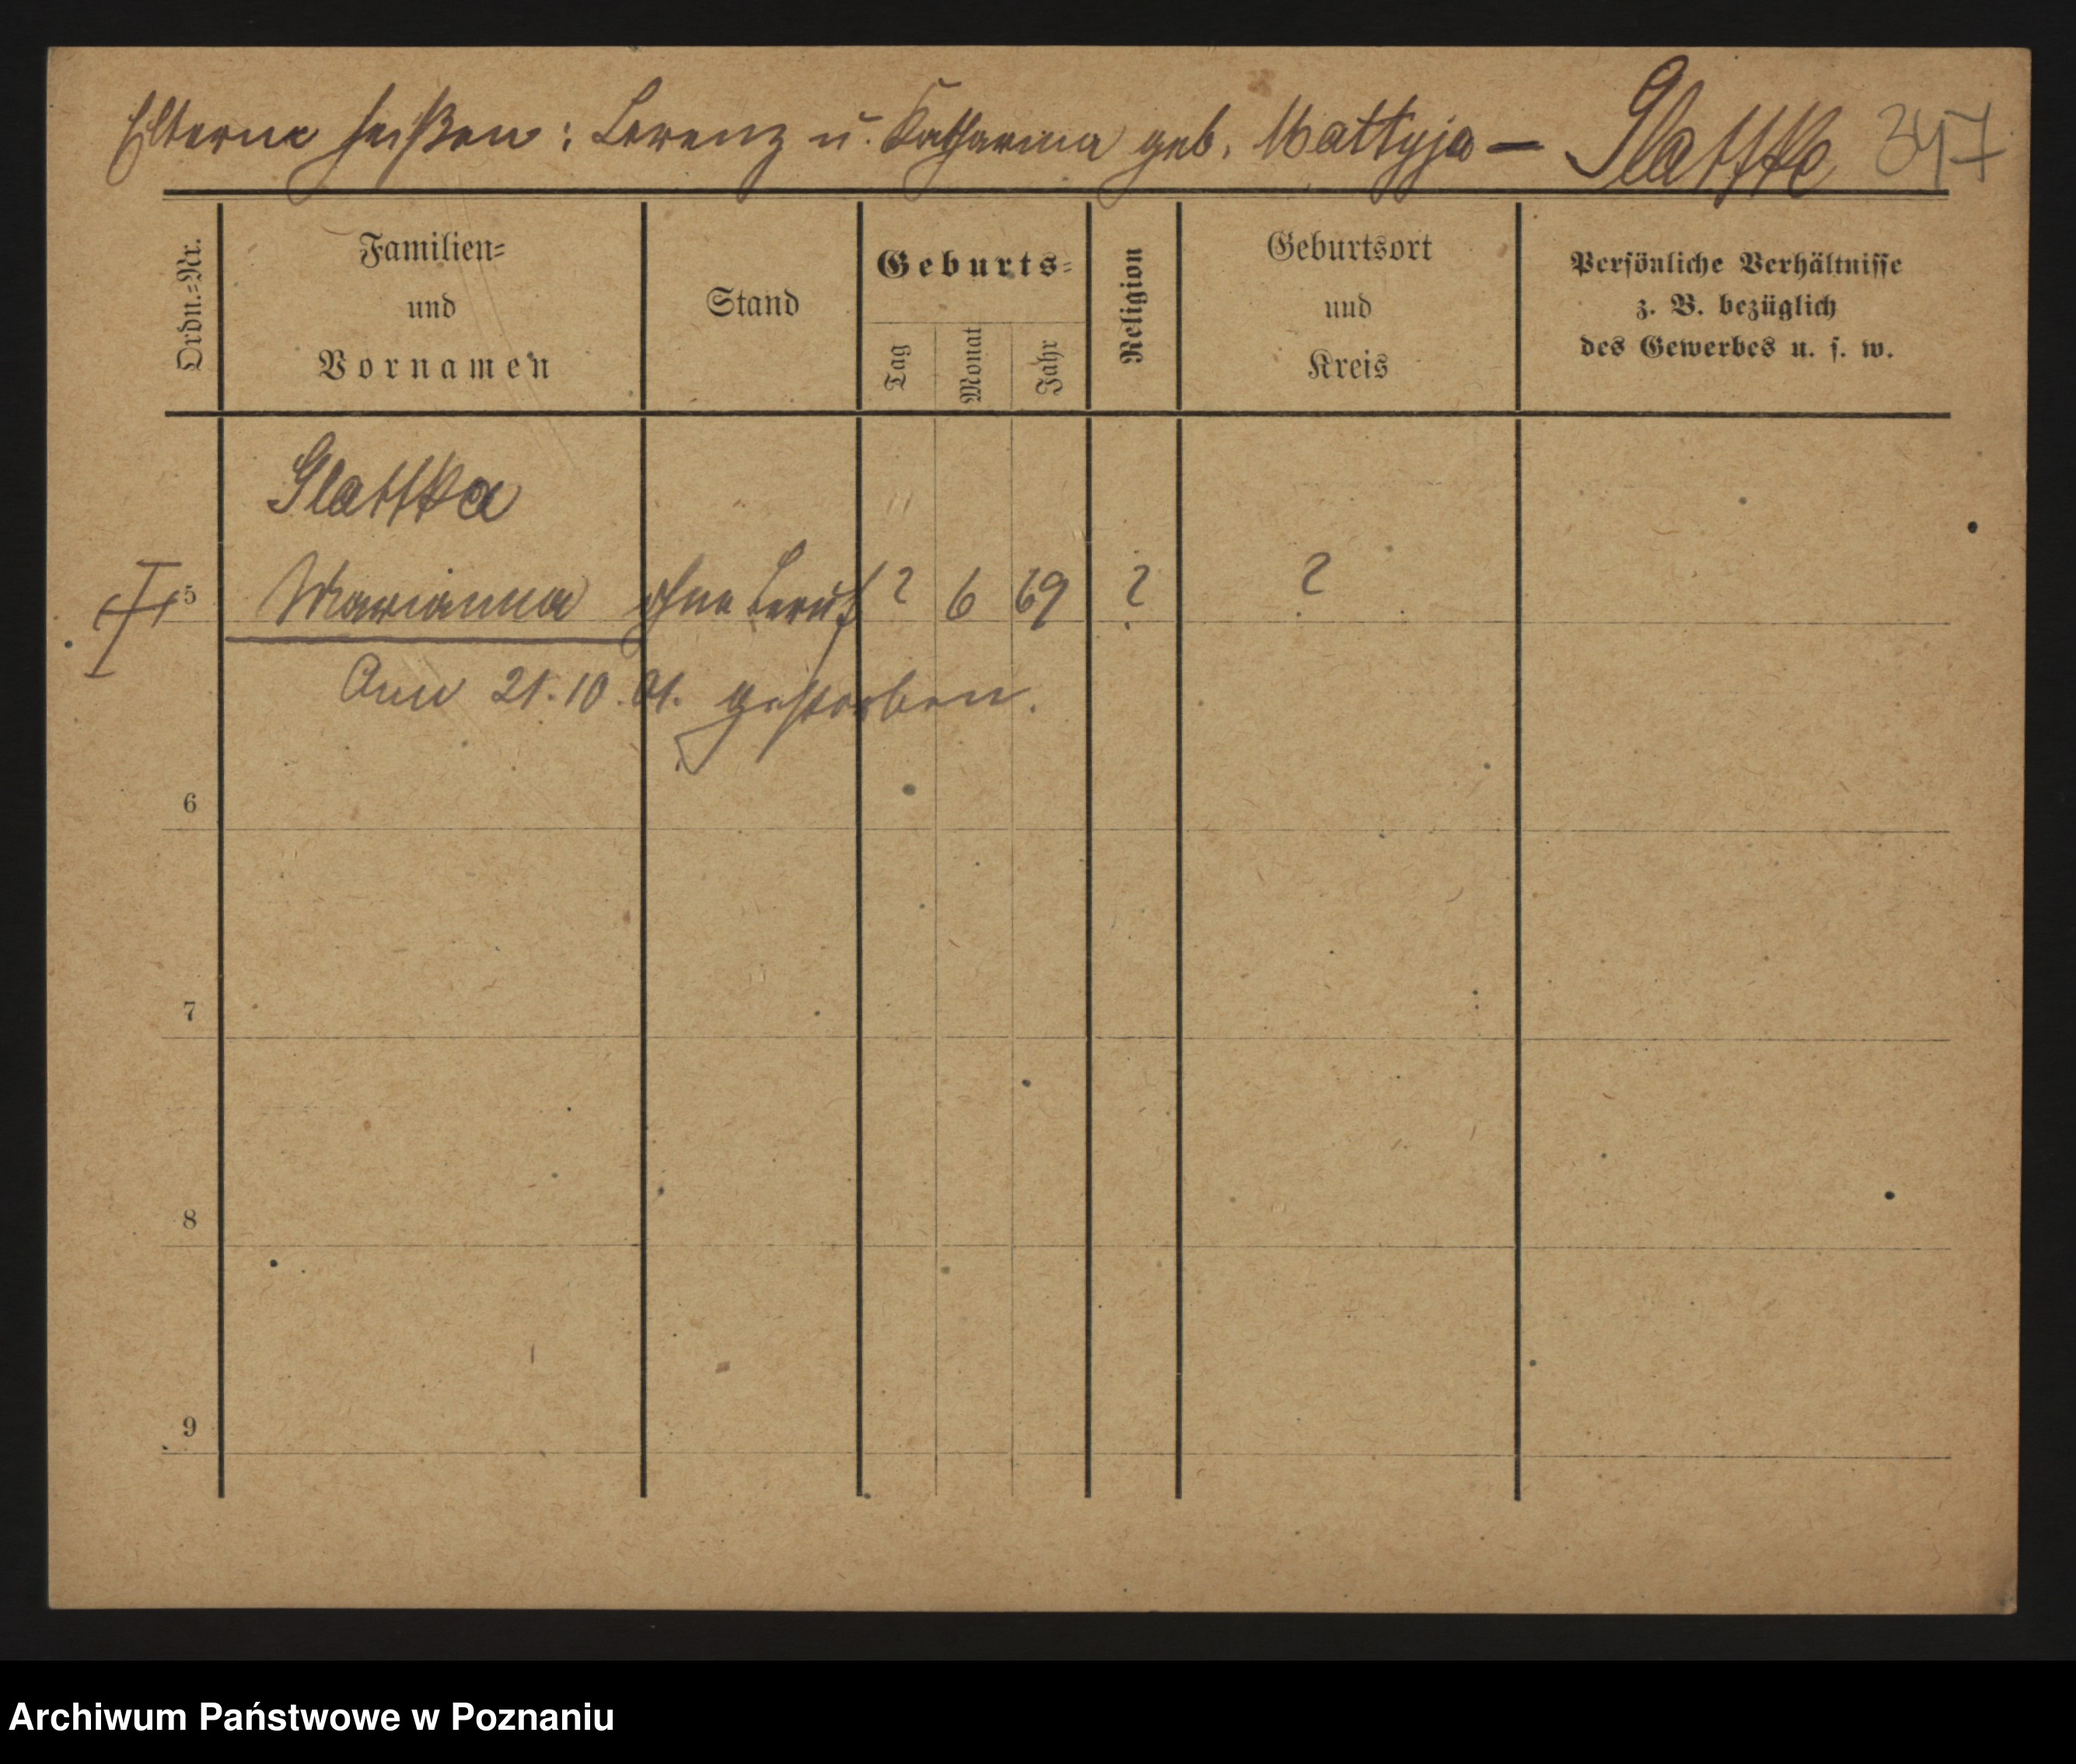 Eltern heißen: Lorenz u. Katharina geb. Mattyja — Slattka 347
Ordn.-Nr.
Familien-
und
Vornamen
Stand
Geburts-
Tag
Monat
Jahr
Religion
Geburtsort
und
Kreis
Persönliche Verhältnisse
z. B. bezüglich
des Gewerbes u. s. w.
Slattka
5 Marianna ohne Beruf ? 6 69 ? ?
Am 21.10.01. gestorben.
6
7
8
9
Archiwum Państwowe w Poznaniu